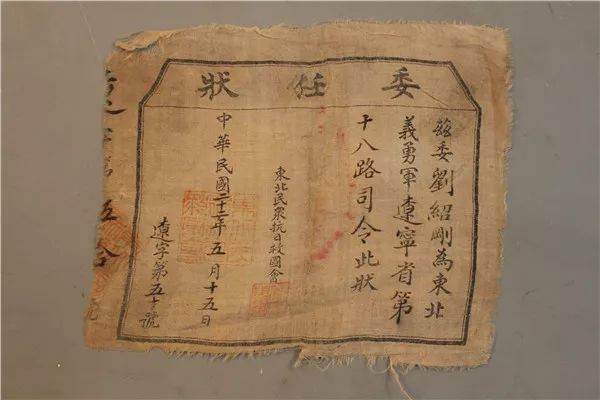 委任狀
茲委劉紹剛為東北
義勇軍遼寧省第
十八路司令此狀
東北民眾抗日救國會
中華民國二十二年五月十五日
遼字第五十號
遼字第伍拾號